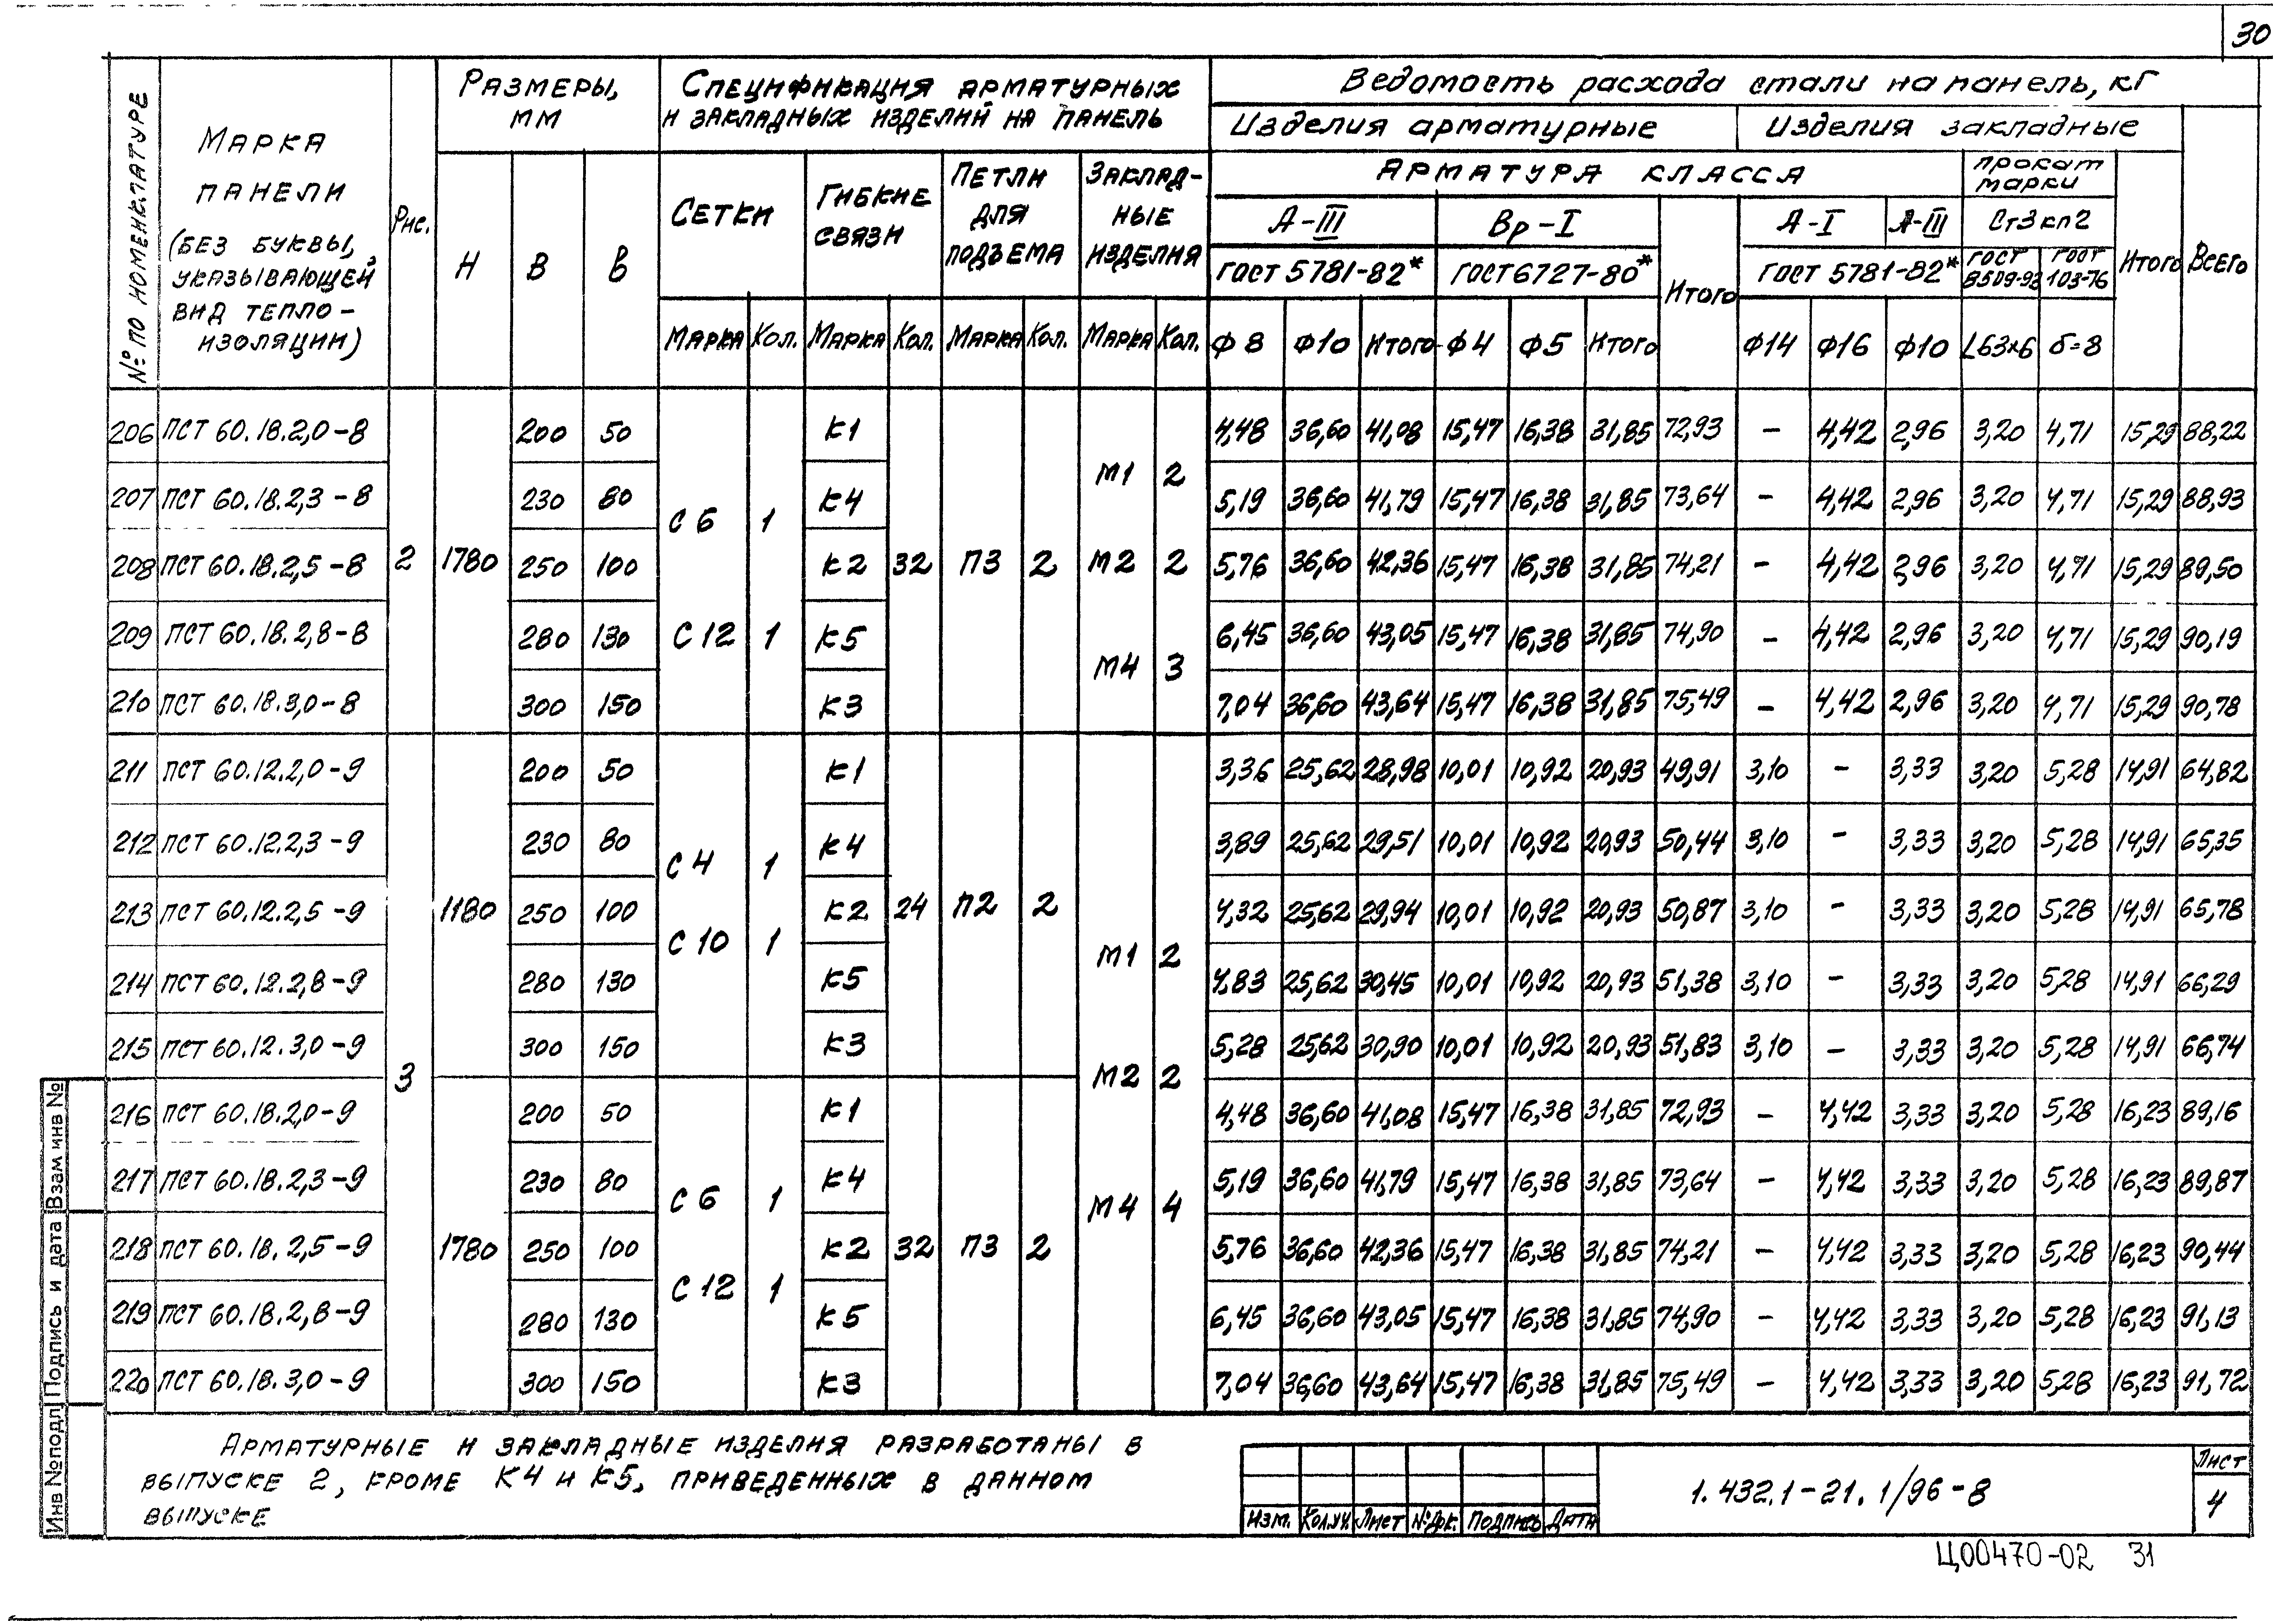 30
№ ПО НОМЕНКЛАТУРЕ
МАРКА ПАНЕЛИ (БЕЗ БУКВЫ, УКАЗЫВАЮЩЕЙ ВИД ТЕПЛО-ИЗОЛЯЦИИ)
Рис.
РАЗМЕРЫ, ММ
Н В в
СПЕЦИФИКАЦИЯ АРМАТУРНЫХ
И ЗАКЛАДНЫХ ИЗДЕЛИЙ НА ПАНЕЛЬ
СЕТКИ
ГИБКИЕ СВЯЗИ
ПЕТЛИ ДЛЯ ПОДЪЕМА
ЗАКЛАД-НЫЕ ИЗДЕЛИЯ
МАРКА Кол. МАРКА Кол. МАРКА Кол. МАРКА Кол.
Ведомость расхода стали на панель, кг
Изделия арматурные Изделия закладные
АРМАТУРА КЛАССА
прокат марки
А-III Вр-I Итого А-I А-III Ст3кп2 Итого Всего
ГОСТ 5781-82* ГОСТ 6727-80* ГОСТ 5781-82* ГОСТ 8509-93 ГОСТ 103-76
Ф8 Ф10 Итого Ф4 Ф5 Итого Ф14 Ф16 Ф10 L63х6 δ=8
206 ПСТ 60.18.2,0-8 200 50 К1 4,48 36,60 41,08 15,47 16,38 31,85 72,93 - 4,42 2,96 3,20 4,71 15,29 88,22
М1 2
207 ПСТ 60.18.2,3-8 230 80 К4 5,19 36,60 41,79 15,47 16,38 31,85 73,64 - 4,42 2,96 3,20 4,71 15,29 88,93
С6 1
208 ПСТ 60.18.2,5-8 2 1780 250 100 К2 32 П3 2 М2 2 5,76 36,60 42,36 15,47 16,38 31,85 74,21 - 4,42 2,96 3,20 4,71 15,29 89,50
209 ПСТ 60.18.2,8-8 280 130 С12 1 К5 6,45 36,60 43,05 15,47 16,38 31,85 74,90 - 4,42 2,96 3,20 4,71 15,29 90,19
М4 3
210 ПСТ 60.18.3,0-8 300 150 К3 7,04 36,60 43,64 15,47 16,38 31,85 75,49 - 4,42 2,96 3,20 4,71 15,29 90,78
211 ПСТ 60.12.2,0-9 200 50 К1 3,36 25,62 28,98 10,01 10,92 20,93 49,91 3,10 - 3,33 3,20 5,28 14,91 64,82
212 ПСТ 60.12.2,3-9 230 80 К4 3,89 25,62 29,51 10,01 10,92 20,93 50,44 3,10 - 3,33 3,20 5,28 14,91 65,35
С4 1
213 ПСТ 60.12.2,5-9 1180 250 100 К2 24 П2 2 4,32 25,62 29,94 10,01 10,92 20,93 50,87 3,10 - 3,33 3,20 5,28 14,91 65,78
С10 1
М1 2
214 ПСТ 60.12.2,8-9 280 130 К5 4,83 25,62 30,45 10,01 10,92 20,93 51,38 3,10 - 3,33 3,20 5,28 14,91 66,29
215 ПСТ 60.12.3,0-9 300 150 К3 5,28 25,62 30,90 10,01 10,92 20,93 51,83 3,10 - 3,33 3,20 5,28 14,91 66,74
3 М2 2
216 ПСТ 60.18.2,0-9 200 50 К1 4,48 36,60 41,08 15,47 16,38 31,85 72,93 - 4,42 3,33 3,20 5,28 16,23 89,16
217 ПСТ 60.18.2,3-9 230 80 К4 5,19 36,60 41,79 15,47 16,38 31,85 73,64 - 4,42 3,33 3,20 5,28 16,23 89,87
С6 1 М4 4
218 ПСТ 60.18.2,5-9 1780 250 100 К2 32 П3 2 5,76 36,60 42,36 15,47 16,38 31,85 74,21 - 4,42 3,33 3,20 5,28 16,23 90,44
С12 1
219 ПСТ 60.18.2,8-9 280 130 К5 6,45 36,60 43,05 15,47 16,38 31,85 74,90 - 4,42 3,33 3,20 5,28 16,23 91,13
220 ПСТ 60.18.3,0-9 300 150 К3 7,04 36,60 43,64 15,47 16,38 31,85 75,49 - 4,42 3,33 3,20 5,28 16,23 91,72
АРМАТУРНЫЕ И ЗАКЛАДНЫЕ ИЗДЕЛИЯ РАЗРАБОТАНЫ В
ВЫПУСКЕ 2, КРОМЕ К4 и К5, ПРИВЕДЕННЫХ В ДАННОМ
ВЫПУСКЕ
Изм. Кол.уч. Лист №док. Подпись Дата
1.432.1-21.1/96-8
Лист
4
Ц00470-02 31
Взам инв №
Подпись и дата
Инв №подл